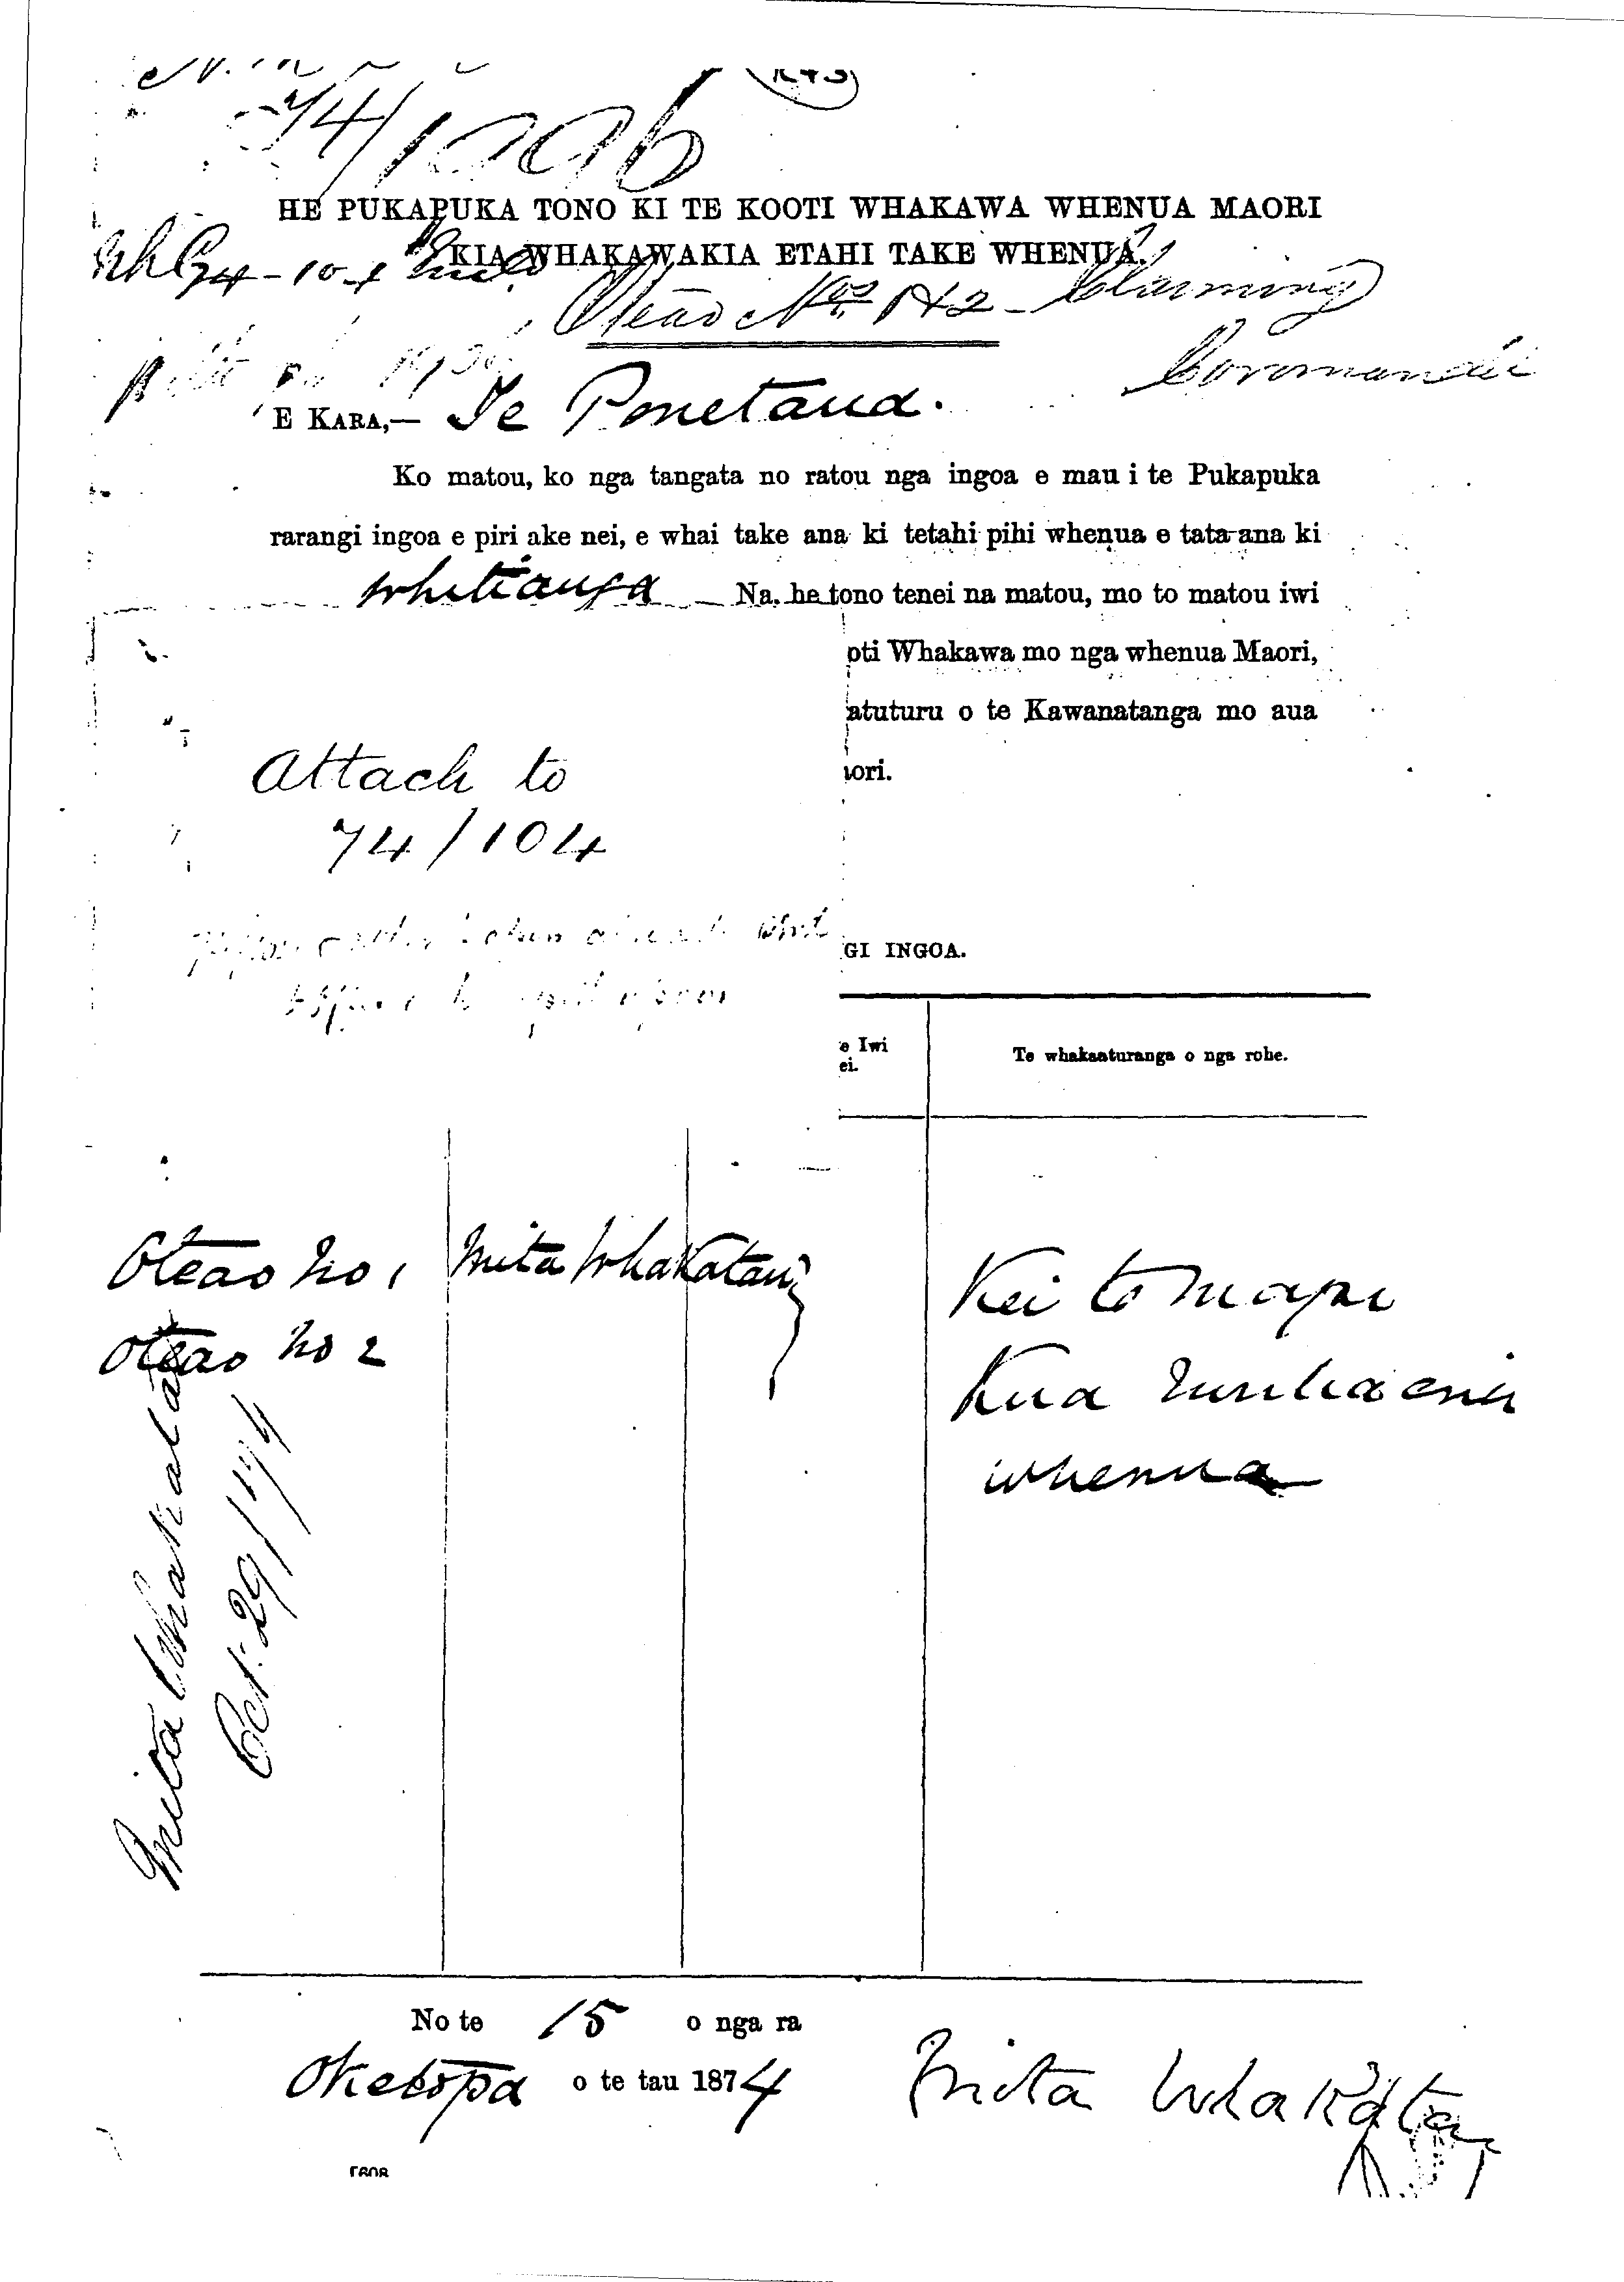 74/1096
HE PUKAPUKA TONO KI TE KOOTI WHAKAWA WHENUA MAORI
KIA WHAKAWAKIA ETAHI TAKE WHENUA.
Oteao Nos 1 & 2 - Claiming
Coromandel
E KARA,— Te Penetana.
Ko matou, ko nga tangata no ratou nga ingoa e mau i te Pukapuka
rarangi ingoa e piri ake nei, e whai take ana ki tetahi pihi whenua e tata ana ki
Whitianga Na, he tono tenei na matou, mo to matou iwi
oti Whakawa mo nga whenua Maori,
atuturu o te Kawanatanga mo aua
Attach to
ori.
74/104
GI INGOA.
e Iwi
ei.
Te whakaaturanga o nga rohe.
Oteao No 1 Mita Whakatau
Oteao No 2
Kei te mapu
Kua ruritia enei
whenua
Mita Whakatau
Oct. 29/74
No te 15 o nga ra
Oketopa o te tau 1874
Mita Whakatau